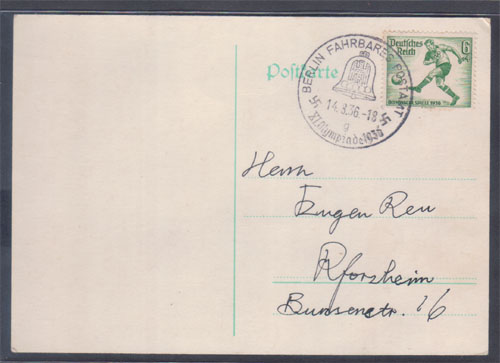 Postkarte
BERLIN FAHRBARES POSTAMT
14.8.36.-18
g
XI. Olympiade 1936
Deutsches Reich 6
OLYMPISCHE SPIELE 1936
Herrn
Eugen Reu
Pforzheim
Bunsenstr. 16